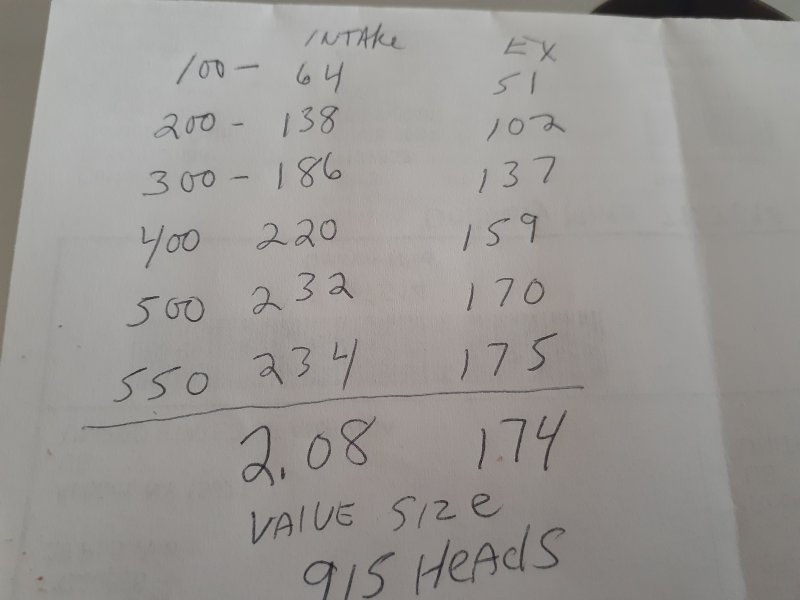 INTAKe EX
100 - 64 51
200 - 138 102
300 - 186 137
400 220 159
500 232 170
550 234 175
2.08 1.74
VALUE SIZe
915 HeAdS